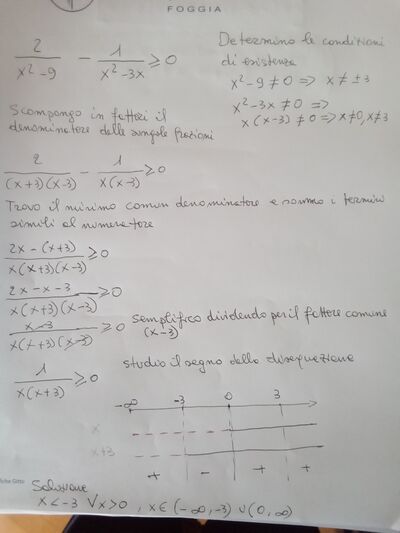 FOGGIA
2/(x²-9) - 1/(x²-3x) ≥ 0
Determino le condizioni
di esistenza
x²-9 ≠ 0 => x ≠ ±3
x²-3x ≠ 0 =>
x(x-3) ≠ 0 => x≠0, x≠3
Scompongo in fattori il
denominatore delle singole frazioni
2/((x+3)(x-3)) - 1/(x(x-3)) ≥ 0
Trovo il minimo comun denominatore e sommo i termini
simili al numeratore
(2x-(x+3))/(x(x+3)(x-3)) ≥ 0
(2x-x-3)/(x(x+3)(x-3)) ≥ 0
(x-3)/(x(x+3)(x-3)) ≥ 0 Semplifico dividendo per il fattore comune
(x-3)
studio il segno della disequazione
1/(x(x+3)) ≥ 0
-∞ -3 0 3
x
x+3
+ - + +
Soluzione
x<-3 ∨ x>0 , x∈(-∞,-3) ∪ (0,∞)